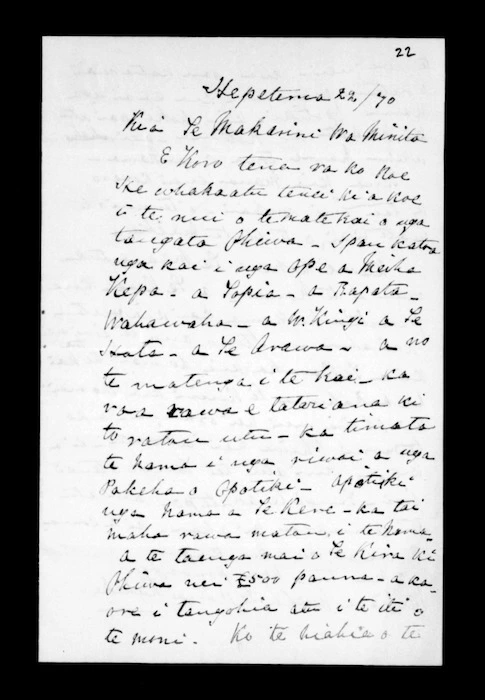 22
Hepetema 22/70
Kia Te Makarini Wa Minita
E Koro tena ra ko koe
He whakaatu tenei ki a koe
i te nui o te mate kai o nga
tangata Ohiwa - I pau katoa
nga kai i nga ope a Meiha
Kepa - a Topia - a Rapata -
Wahawaha - a W. Kingi a Te
Hata - a Te Arawa - a no
te matenga i te kai - ka
roa rawa e tatari ana ki
to ratou utu - ka timata
te nama i nga riwai a nga
Pakeha o Opotiki - Opotiki
nga nama a Te Kere - ka tai
maha rawa matou i te nama -
a te taenga mai o Te Kira ki
Ohiwa nei £500 pauna - a ka -
ore i tangohia atu i te iti o
te moni. Ko te hiahia o te